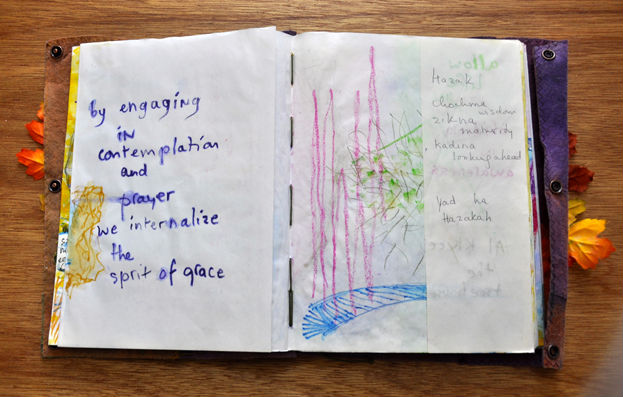 by engaging
in
contemplation
and
prayer
we internalize
the
sprit of grace
allow
Hazak
chochma
wisdom
zikna
maturity
kadima
looking ahead
Yad ha
Hazakah
the